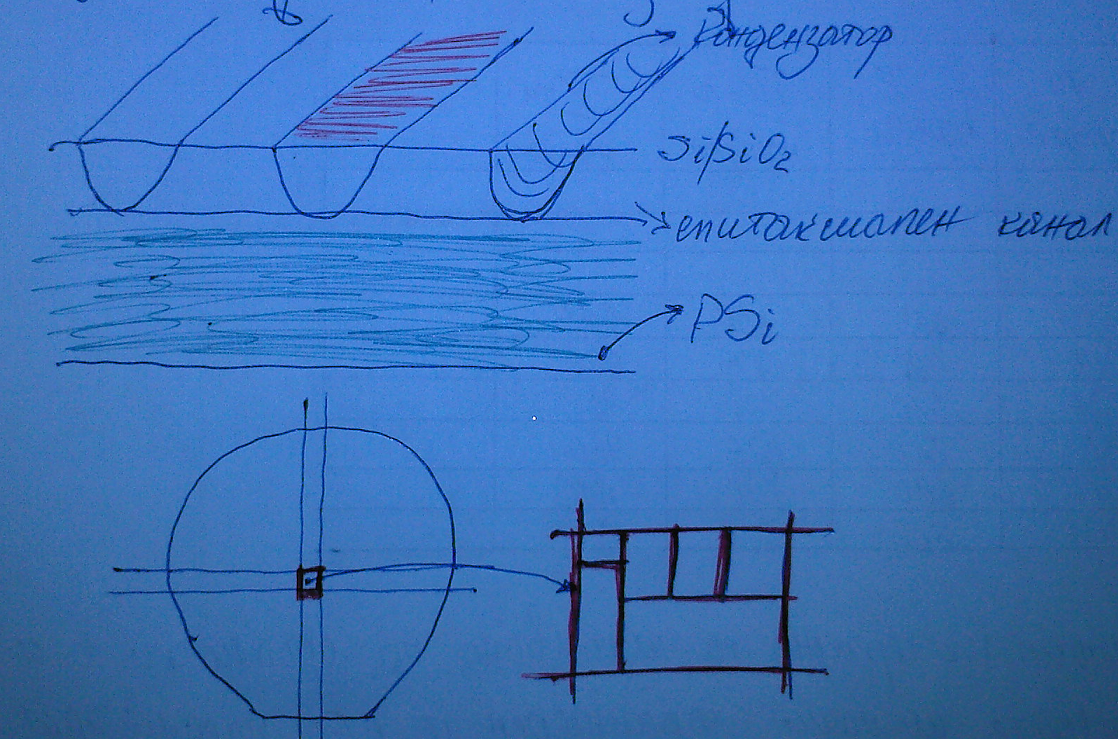 кондензатор
Si/SiO2
епитаксиален канал
PSi